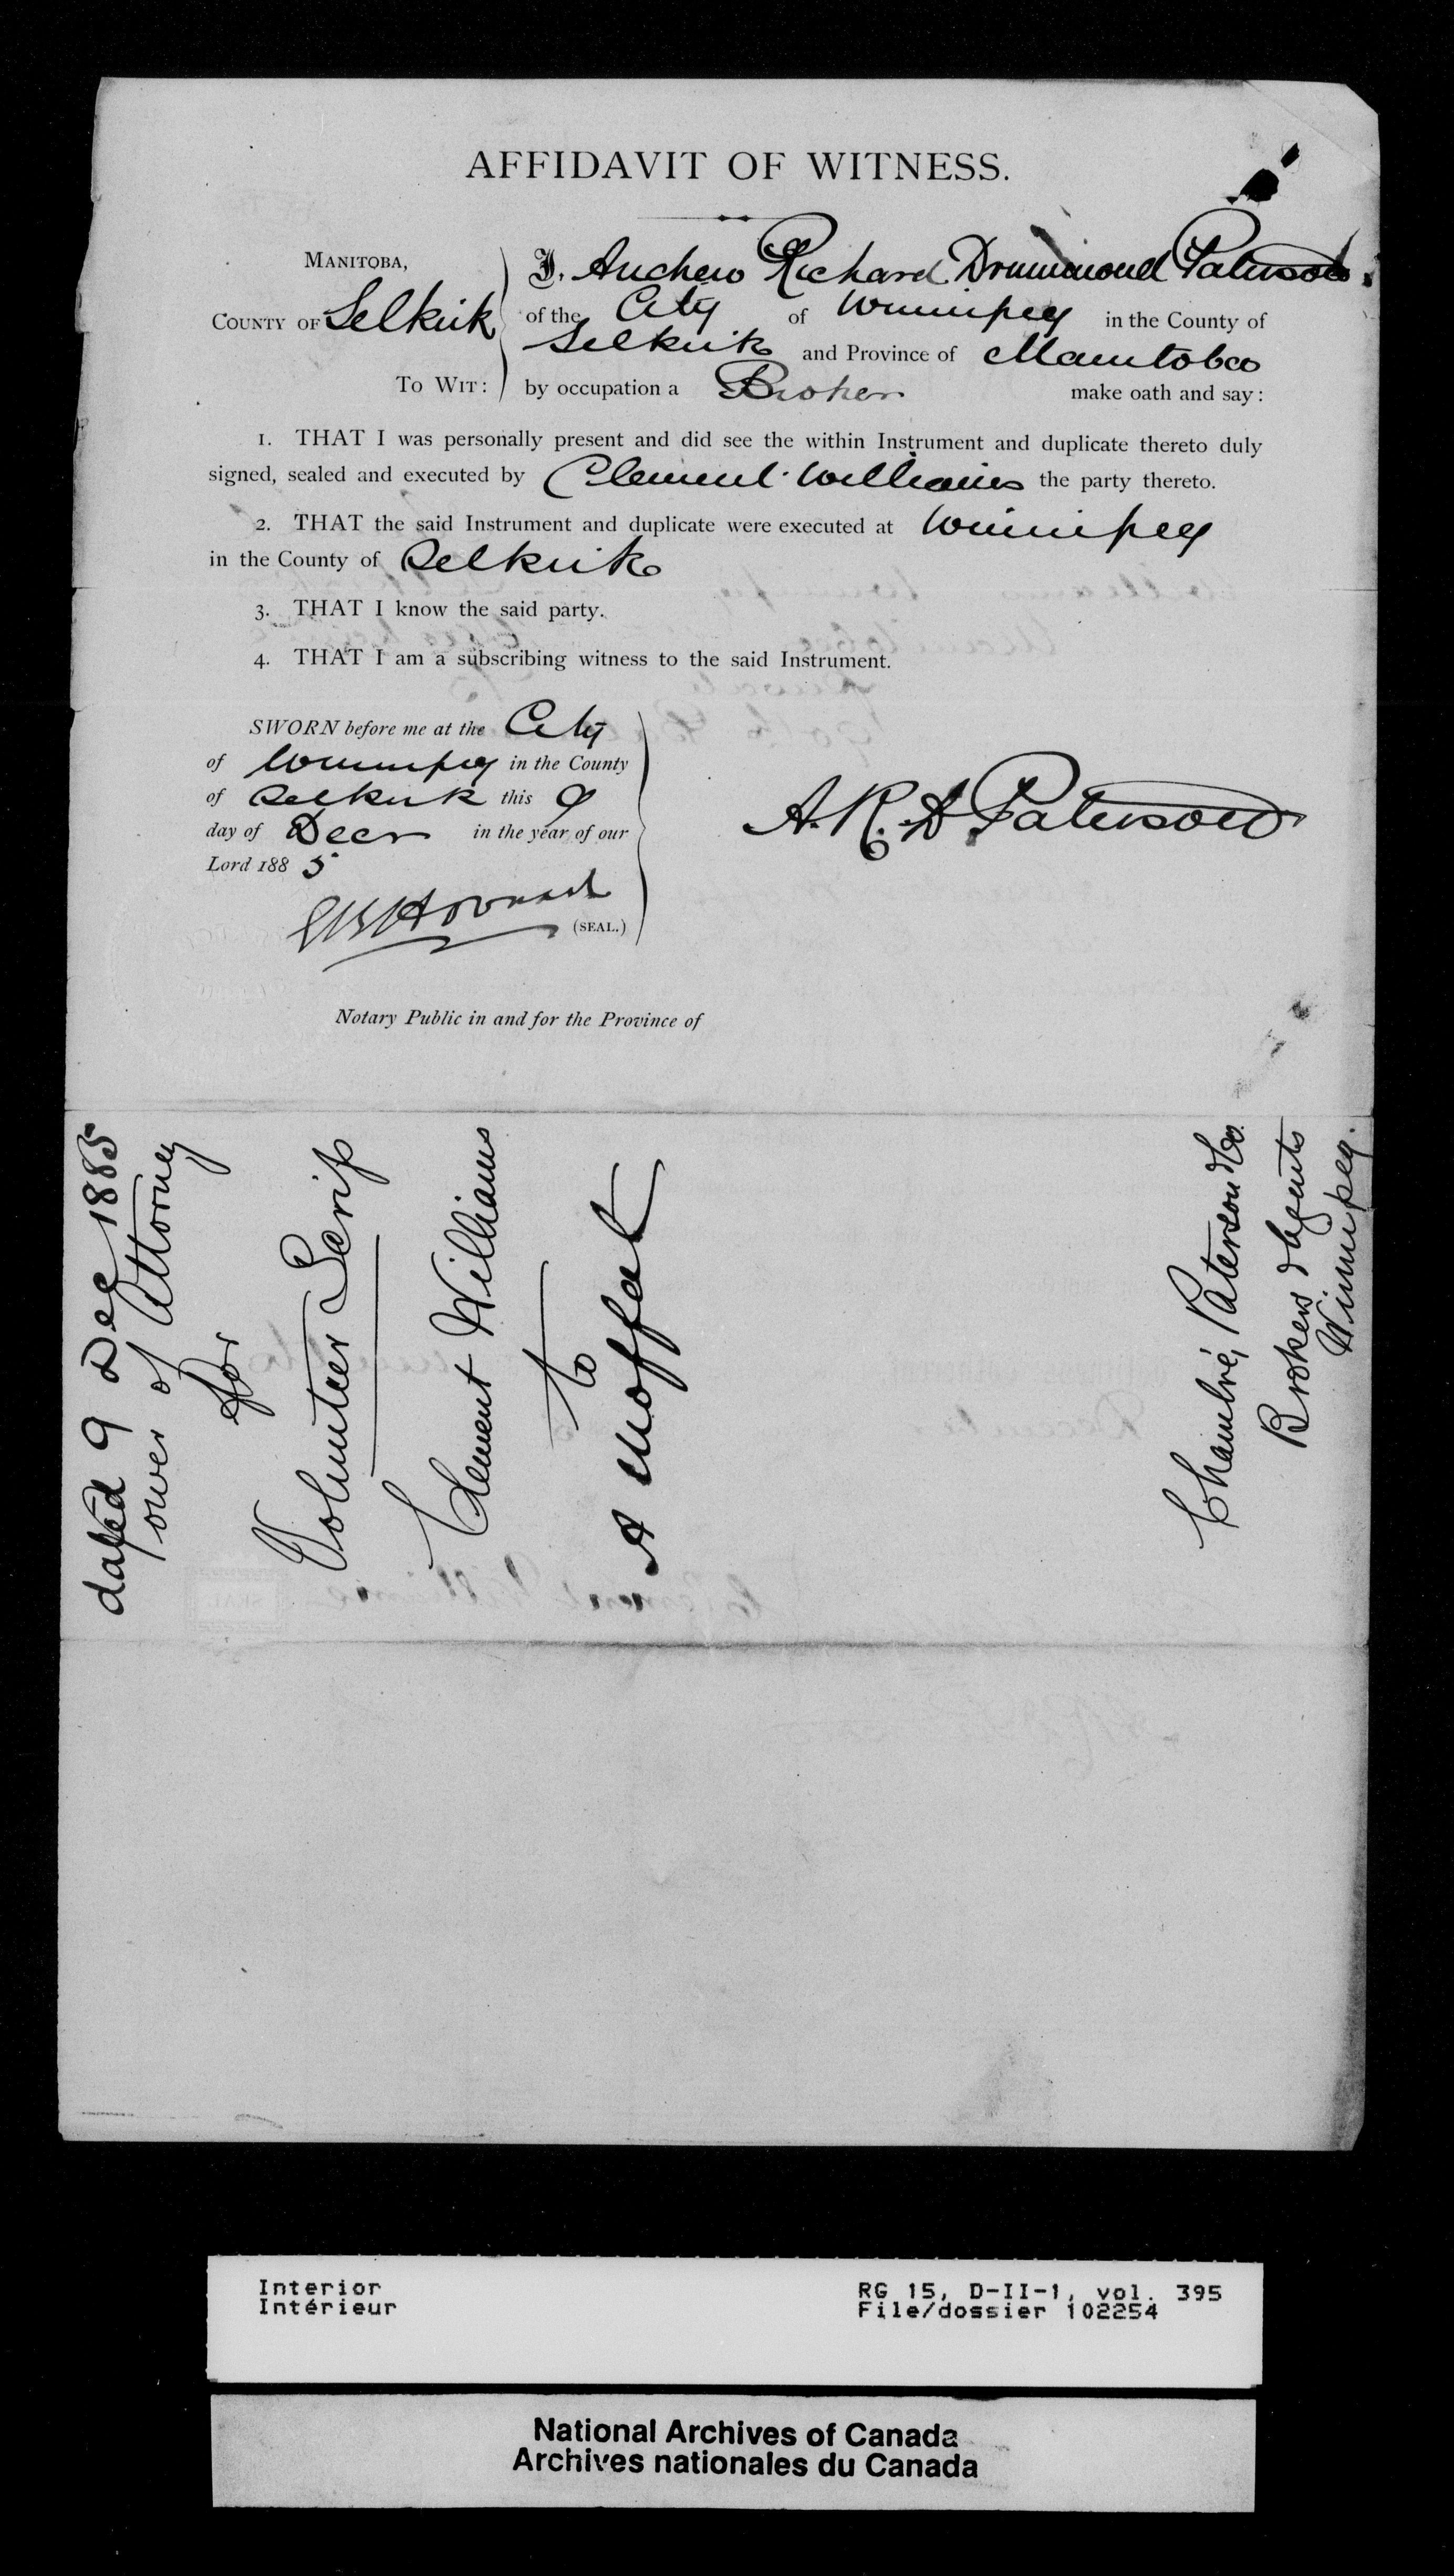 AFFIDAVIT OF WITNESS.
MANITOBA,
COUNTY OF Selkirk
TO WIT:
I, Andrew Richard Drummond Paterson
of the City of Winnipeg in the County of
Selkirk and Province of Manitoba
by occupation a Broker make oath and say:
1. THAT I was personally present and did see the within Instrument and duplicate thereto duly
signed, sealed and executed by Clement Williams the party thereto.
2. THAT the said Instrument and duplicate were executed at Winnipeg
in the County of Selkirk
3. THAT I know the said party.
4. THAT I am a subscribing witness to the said Instrument.
SWORN before me at the City
of Winnipeg in the County
of Selkirk this 9
day of Decr in the year of our
Lord 1885
(SEAL.)
A. R. D. Paterson
Notary Public in and for the Province of
dated 9 Dec 1885
Power of Attorney
for
Volunteer Scrip
Clement Williams
to
A Moffat
Chambré, Paterson & Co.
Brokers & Agents
Winnipeg.
Interior
Intérieur
RG 15, D-II-1, vol. 395
File/dossier 102254
National Archives of Canada
Archives nationales du Canada